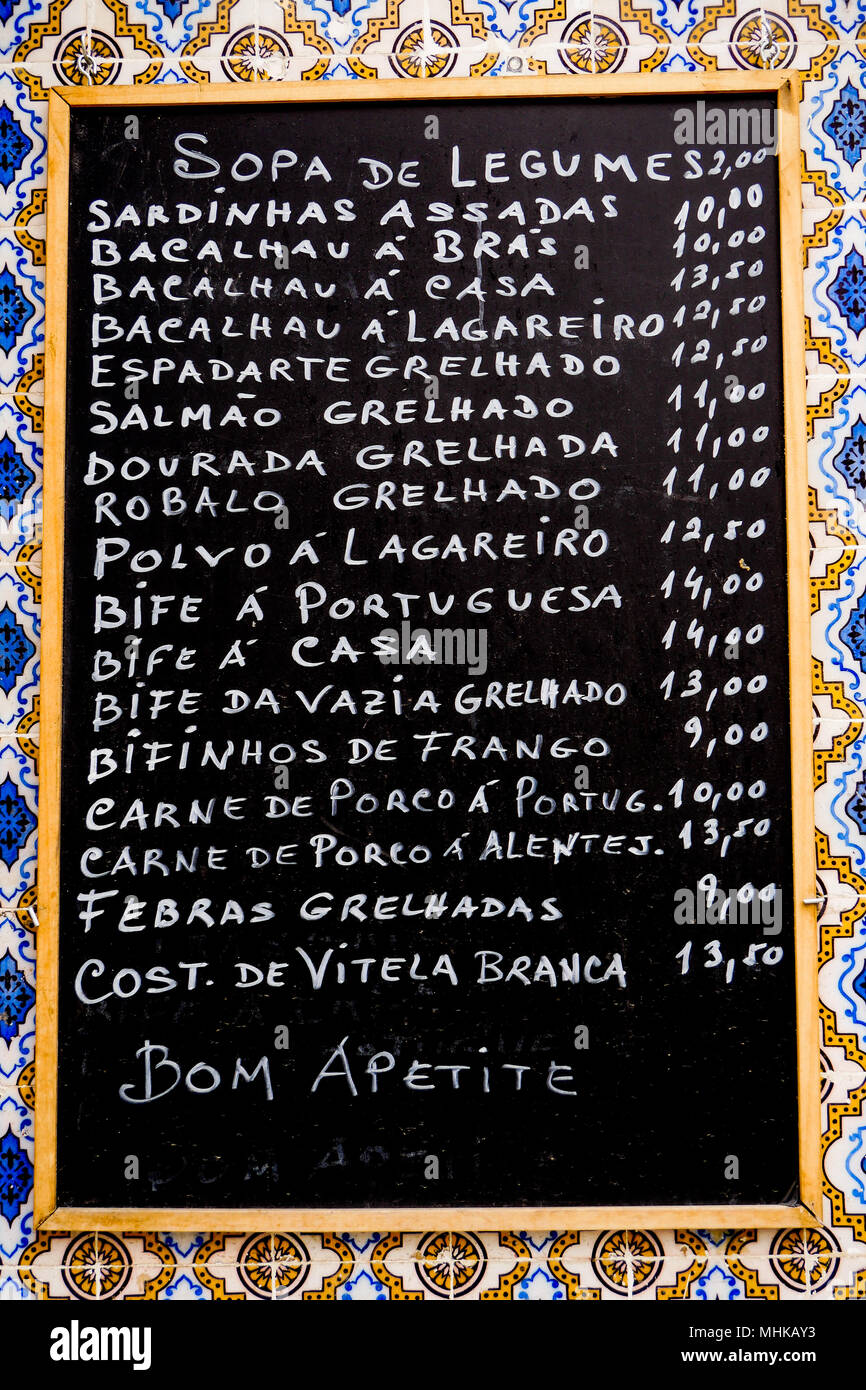 SOPA DE LEGUMES 2,00
SARDINHAS ASSADAS 10,00
BACALHAU Á BRÁS 10,00
BACALHAU Á CASA 13,50
BACALHAU Á LAGAREIRO 12,50
ESPADARTE GRELHADO 12,50
SALMÃO GRELHADO 11,00
DOURADA GRELHADA 11,00
ROBALO GRELHADO 11,00
POLVO Á LAGAREIRO 12,50
BIFE Á PORTUGUESA 14,00
BIFE Á CASA 14,00
BIFE DA VAZIA GRELHADO 13,00
BIFINHOS DE FRANGO 9,00
CARNE DE PORCO Á PORTUG. 10,00
CARNE DE PORCO Á ALENTEJ. 13,50
FEBRAS GRELHADAS 9,00
COST. DE VITELA BRANCA 13,50
BOM APETITE
alamy
Image ID: MHKAY3
www.alamy.com